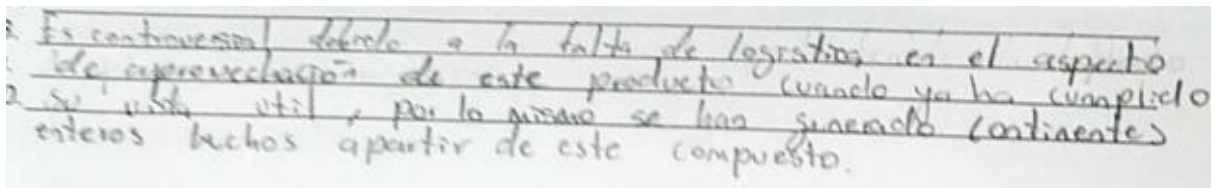 Es controversial debido a la falta de logistica en el aspecto
de aprovechación de este producto cuando ya ha cumplido
su vida util, por lo mismo se han generado continentes
enteros hechos apartir de este compuesto.